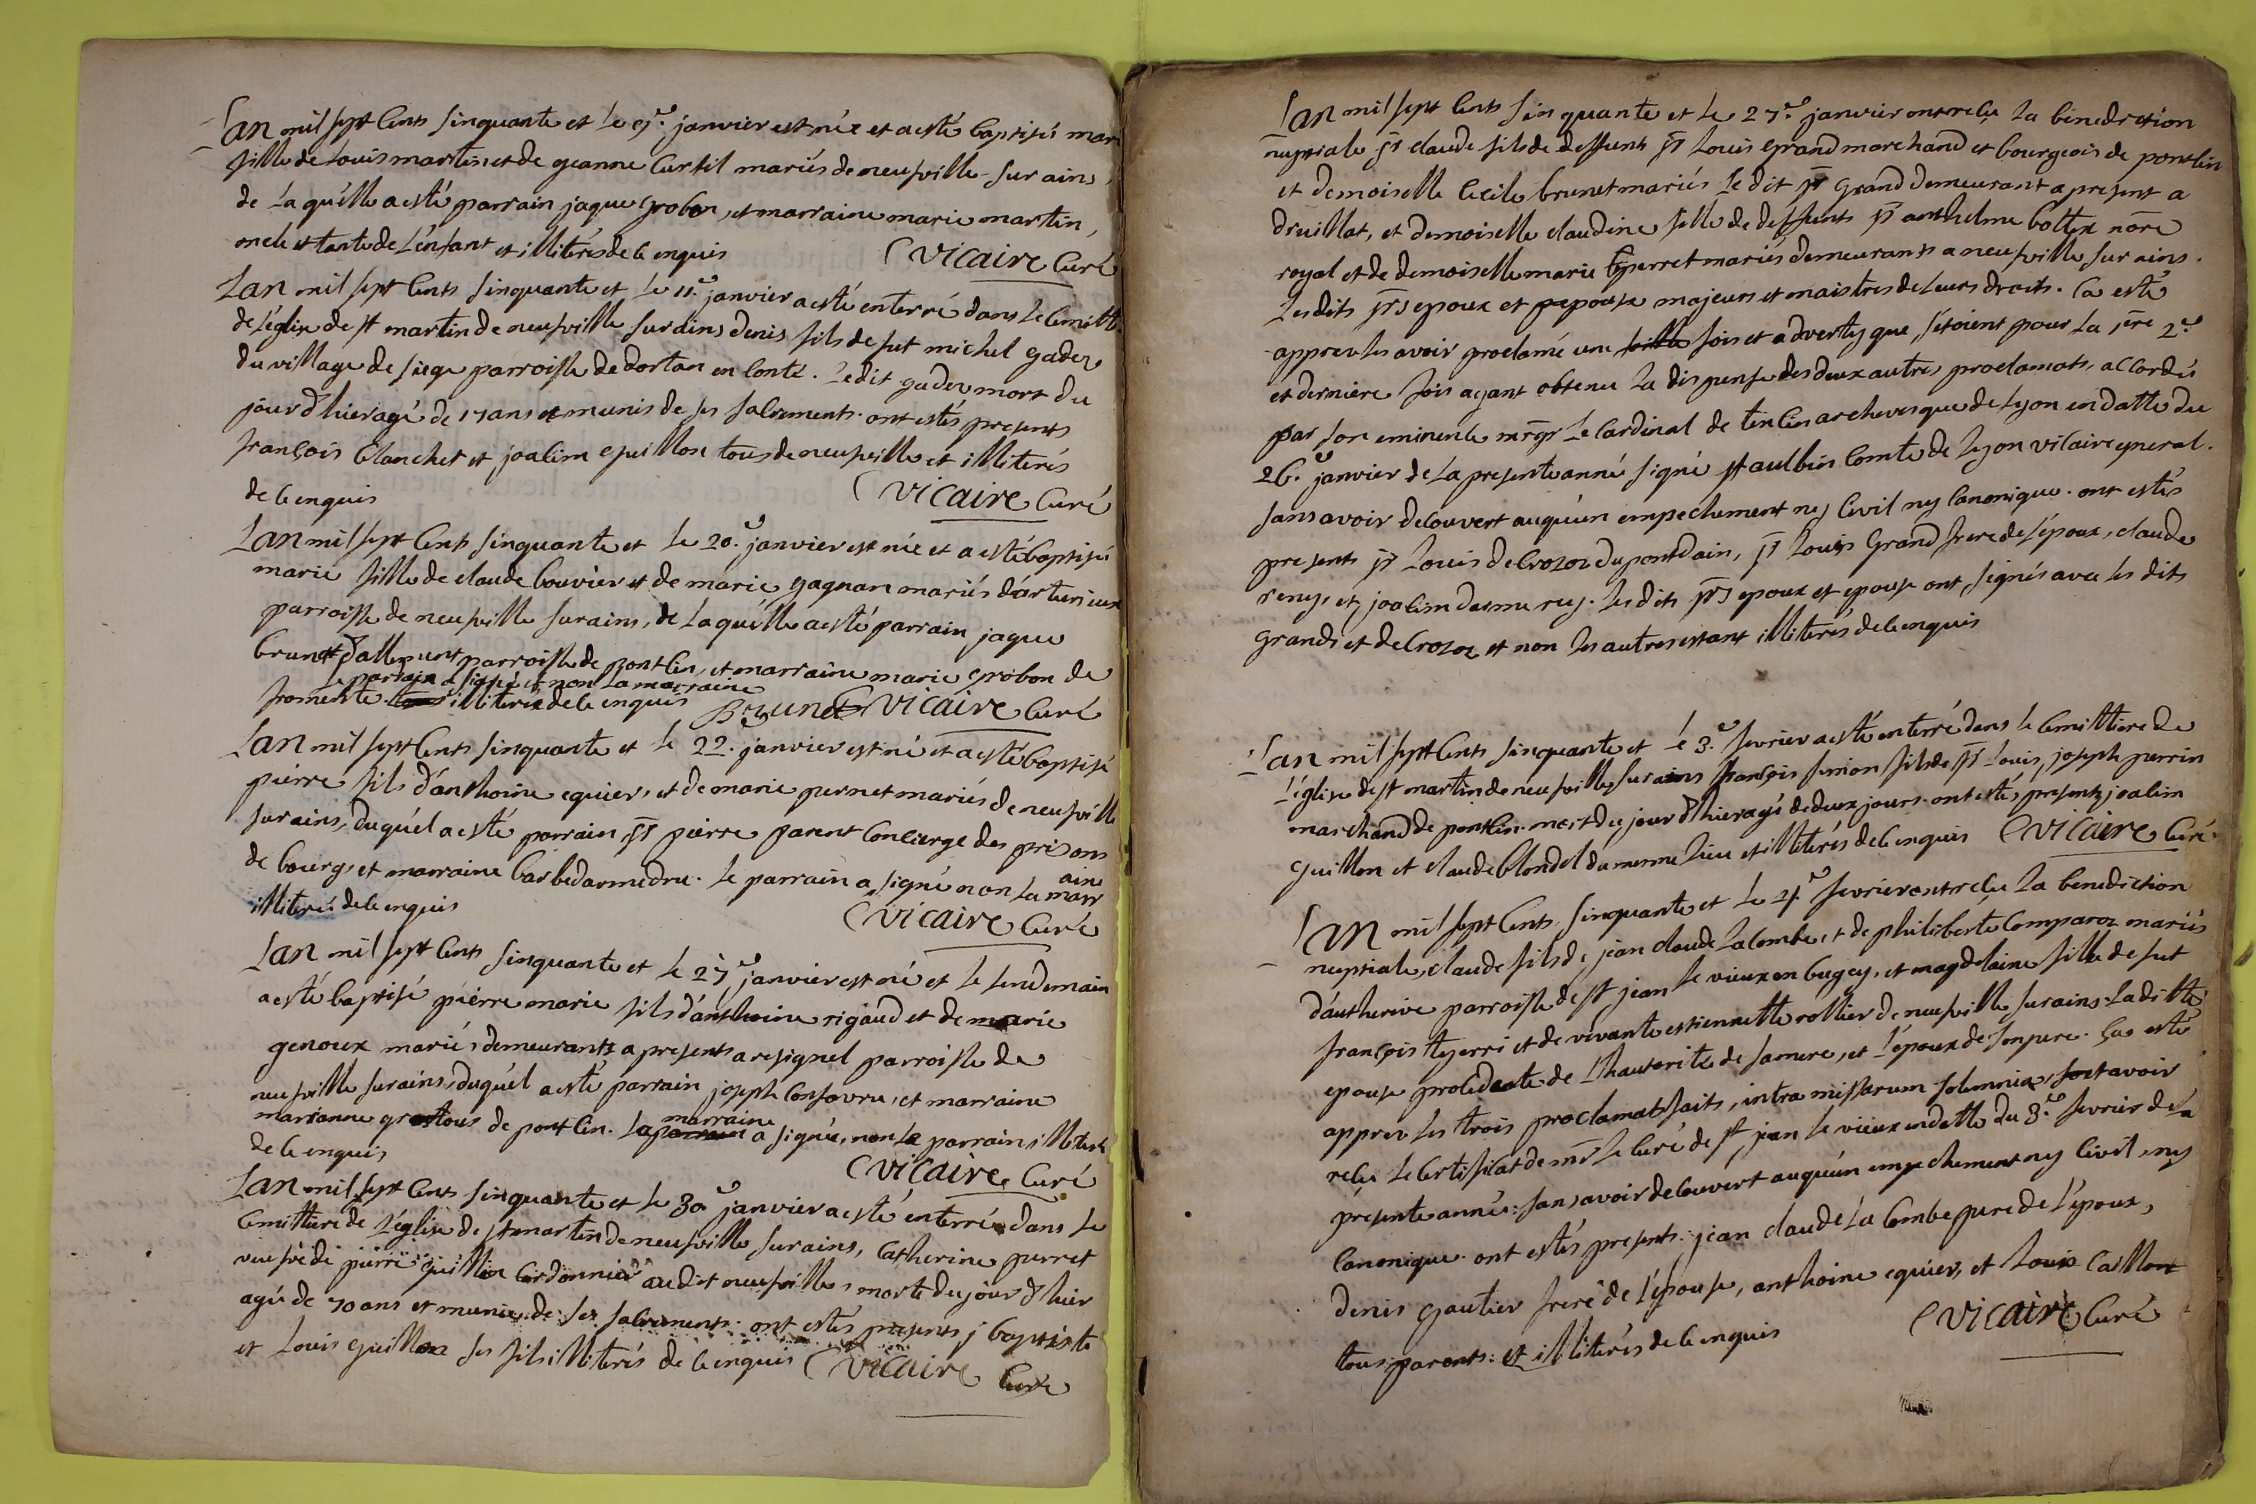 Lan mil sept cents sinquante et le 9.e janvier est née et a esté baptisée mar
fille de Louis martin et de jeanne Curtil mariés de neufville sur ains,
de la quélle a esté parrain jaque grobon, et marraine marie martin,
oncle et tante de L'enfant et illiterés de ce enquis vicaire Curé
Lan mil sept cents sinquante et le 11.e janvier a esté enterré dans le Cemitt
de l'eglise de st martin de neufville sur ains denis fils de fut michel gader
du village de siege parroisse de dortan en Conté. Ledit gader mort du
jour d'hier agé de 17 ans et munis de ses sacrements. ont estés presents
françois blanchet et joacim guillon tous de neufville et illiterés
de ce enquis vicaire Curé
Lan mil sept cents sinquante et le 20.e janvier est née et a esté baptisée
marie fille de claude bouvier et de marie gagnan mariés d'arturieux
parroisse de neufville sur ains, de la quélle a esté parrain jaque
brunet parroisse de pontcin, et marraine marie grobon de
le parrain a signé et non la marraine
fromente illiterée de ce enquis Brunet vicaire Curé
Lan mil sept cents sinquante et le 22.e janvier est né et a esté baptisé
pierre fils d'anthoine equier, et de marie pernet mariés de neufville
sur ains, duquél a esté parrain sr pierre parent Concierge des prisons
de bourg, et marraine barbe darmedru. le parrain a signé non la marraine
illiterée de ce enquis vicaire Curé
Lan mil sept cents sinquante et le 27.e janvier est né et le lendemain
a esté baptisé pierre marie fils d'anthoine rigaud et de marie
genoux mariés demeurants a presents a resignel parroisse de
neufville sur ains, duquél a esté parrain joseph et marraine
marianne de pontcin. la marraine a signée, non le parrain illiteré
de ce enquis vicaire Curé
Lan mil sept cents sinquante et le 30.e janvier a esté enterrée dans le
Cemittiere de L'églize de st martin de neufville sur ains, Catherine perret
veufve de pierre guillon Cordonnier audit neufville, morte du jour d'hier
agée de 70 ans et munie de ses sacrements. ont estés presents j baptiste
et Louis guillon ses fils illiterés de ce enquis vicaire Curé
Lan mil sept cents sinquante et le 27.e janvier ont reçu la benediction
nuptiale sr claude fils de deffunt sr Louis grand marchand et bourgeois de pontcin
et demoiselle Cecile brunet mariés le dit sr grand demeurant a present a
druillat, et demoiselle claudine fille de deffunts sr anthelme bottex nore
royal et de demoiselle marie perret mariés demeurants a neufville sur ains.
Lesdits srs epoux et epouse majeurs et maistres de leurs droits. Ca esté
appres les avoir proclamé une fois et adverty que s'etoient pour la 1ere 2.e
et derniere fois ayant obtenu la dispense des deux autres proclamats, accordée
par son eminence mrgr le Cardinal de tencin archevesque de Lyon en datte du
26.e janvier de la presente année signé st aulbin Comte de Lyon vicaire general.
sans avoir découvert auquéun empechement ny Civil ny Canonique. ont estés
presents sr Louis de Crozoz du pontdain, sr Louis grand frere de L'époux, claude
reney, et joacim darmerey. les dits srs epoux et epouse ont signés avec les dits
grands et de Crozoz et non les autres estant illiterés de ce enquis
Lan mil sept Cents sinquante et le 3.e fevrier a esté enterré dans le Cemittiere de
L'églize de st martin de neufville sur ains françois simon fils de sr Louis joseph perrin
marchand de pontcin. mort du jour d'hier agé de deux jours. ont estés presents joacim
guillon et claude blondel du mesme lieu et illiterés de ce enquis vicaire Curé
Lan mil sept Cents sinquante et le 4.e fevrier ont reçu la benediction
nuptiale, claude fils de jean claude lacombe, et de philiberte Comparoz mariés
d'autherive parroisse de st jean le vieux en bugey, et magdelaine fille de fut
françois tyerri et de vivante estiennette rollier de neufville sur ains. Ladite
epouse procedante de l'hautorité de sa mere, et l'époux de son pere. Ça esté
appres les trois proclamats faits, intra missarum solemnia, et avoir
reçu le Certificat de mr le Curé de st jean le vieux en datte du 3.e fevrier de la
presente année: sans avoir découvert auquéun empechement ny Civil, ny
Canonique. ont estés presents jean claude la Combe pere de L'époux,
denis gautier frere de L'épouse, anthoine equier, et Louis Caillon
tous parents: et illiterés de ce enquis vicaire Curé